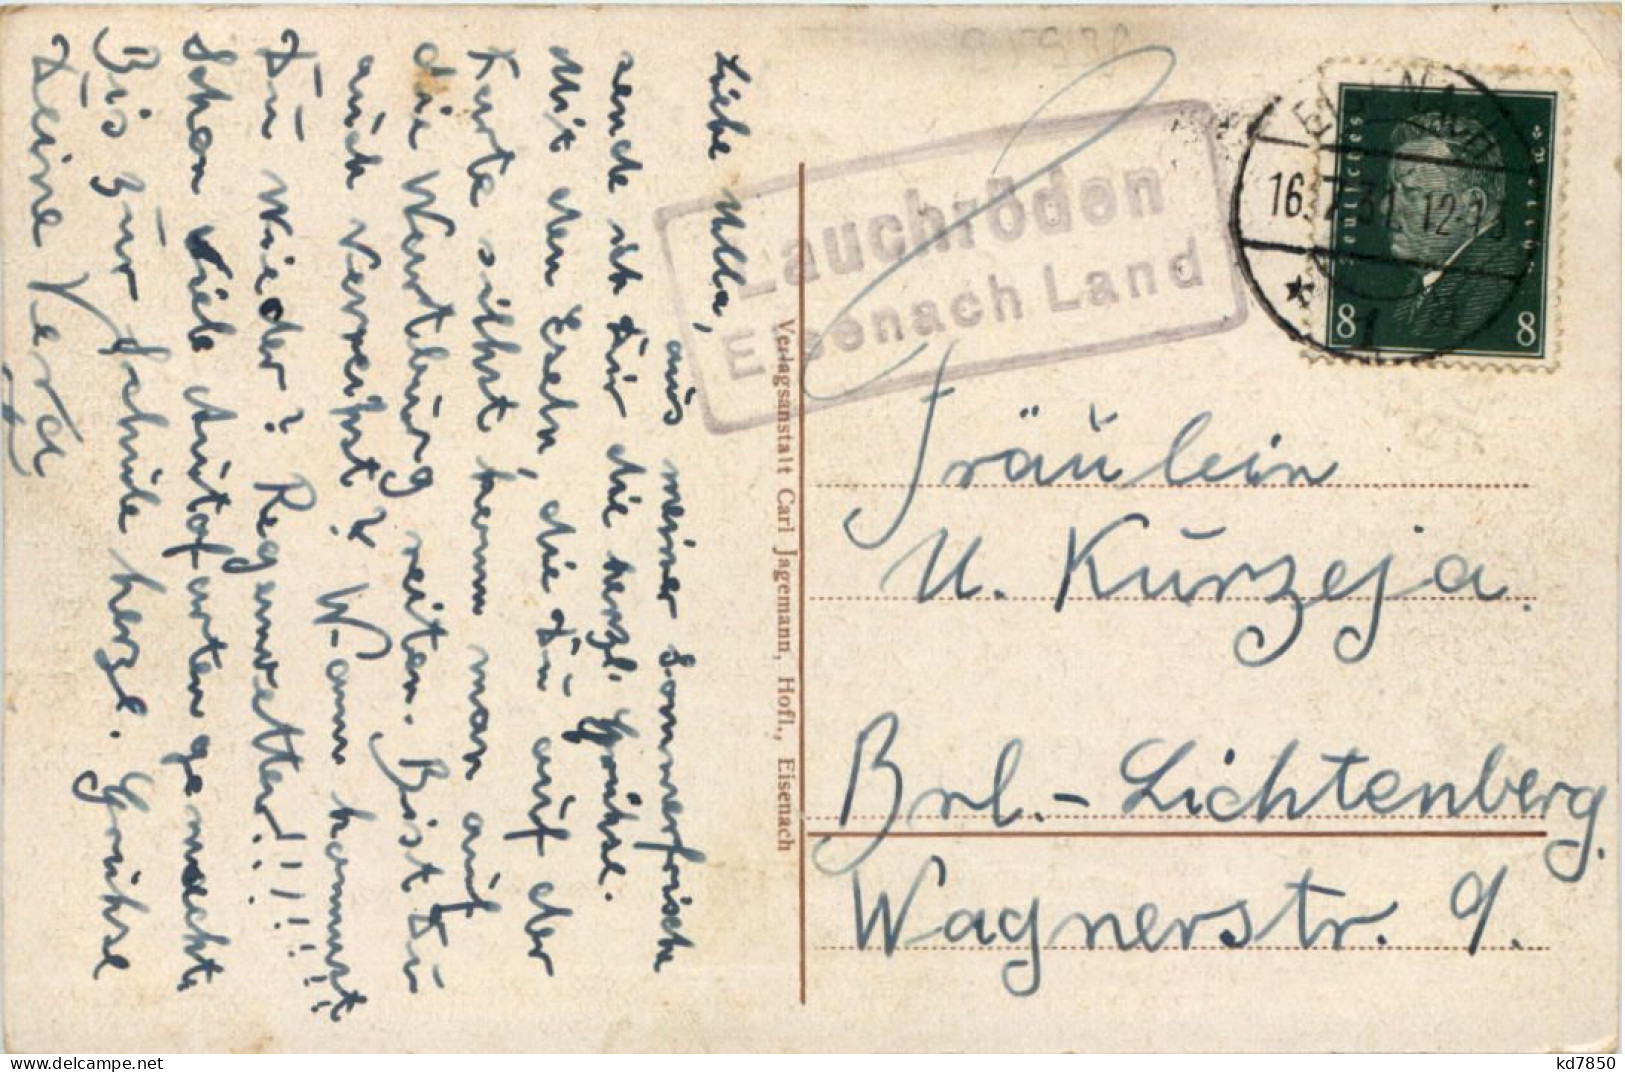 Liebe Ulla,
aus meiner Sommerfrische
sende ich Dir die herzl. Grüsse.
Mit den Eseln, die Du auf der
Karte siehst kann man auf
die Wartburg reiten. Bist Du
auch verreist? Wann kommst
Du wieder? Regenwetter!!!!!!
Schon viele Autofarten gemacht
Bis zur Schule herze. Grühse
Deine Vera
Verlagsanstalt Carl Jagemann, Hofl., Eisenach
Lauchröden
Eisenach Land
EISENACH
16.7.31. 12-13
* 1 d
Deutsches Reich
8 8
Fräulein
U. Kurzeja.
Brl.-Lichtenberg.
Wagnerstr. 9.
kd7850